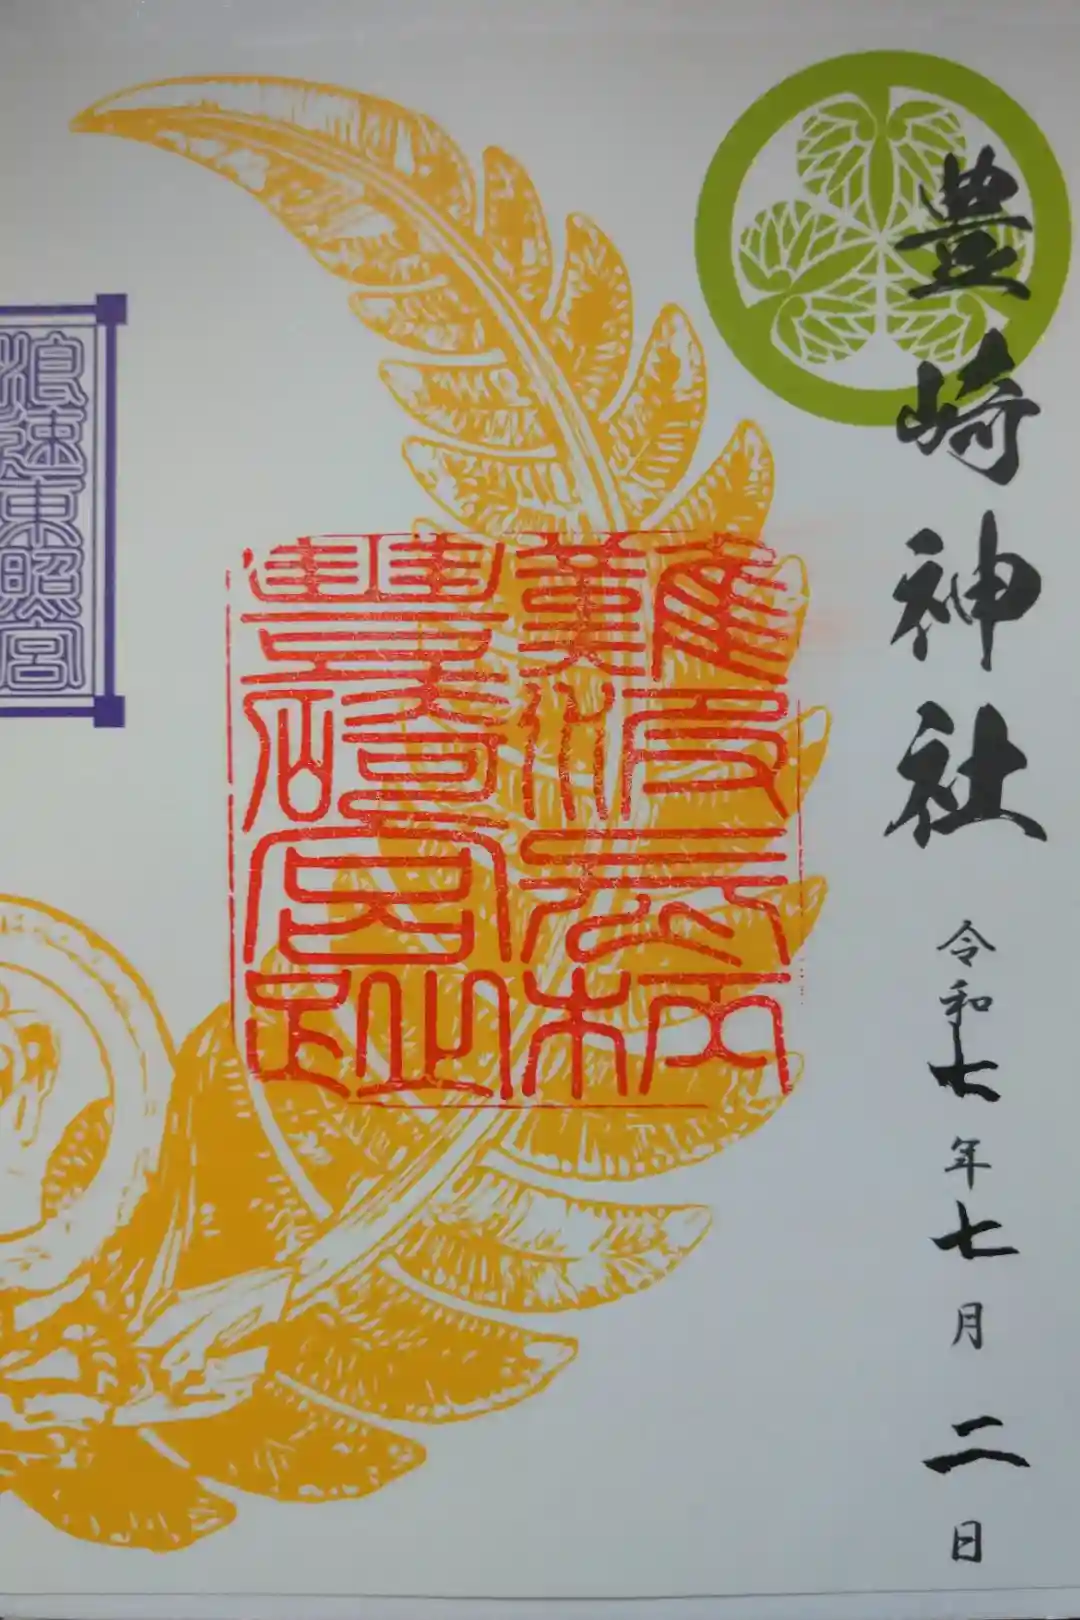 豊崎神社
令和七年七月二日
難波長柄
豊碕宮趾
浪速東照宮